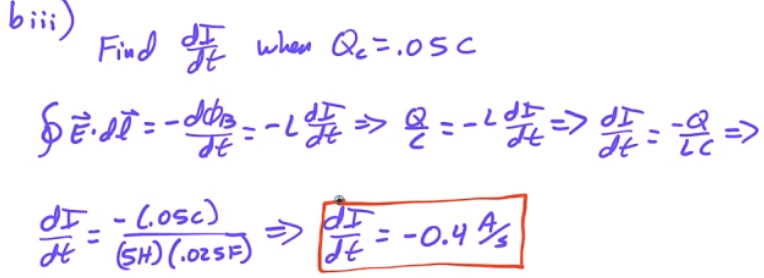 biii)
Find dI/dt when Q_c = .05C
∮ E⃗·dl⃗ = -dϕ_B/dt = -L dI/dt => Q/C = -L dI/dt => dI/dt = -Q/LC =>
dI/dt = -(.05C)/(5H)(.025F) => dI/dt = -0.4 A/s